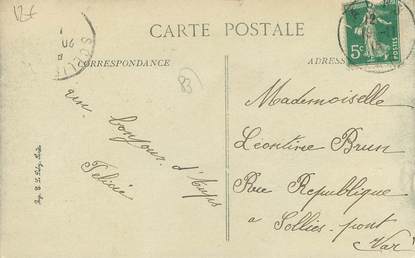 12€
CARTE POSTALE
CORRESPONDANCE
ADRESS
5c
83
un bonjour d'Aups
Félicie
Mademoiselle
Léontine Brun
Rue République
a Solliès-pont
Var